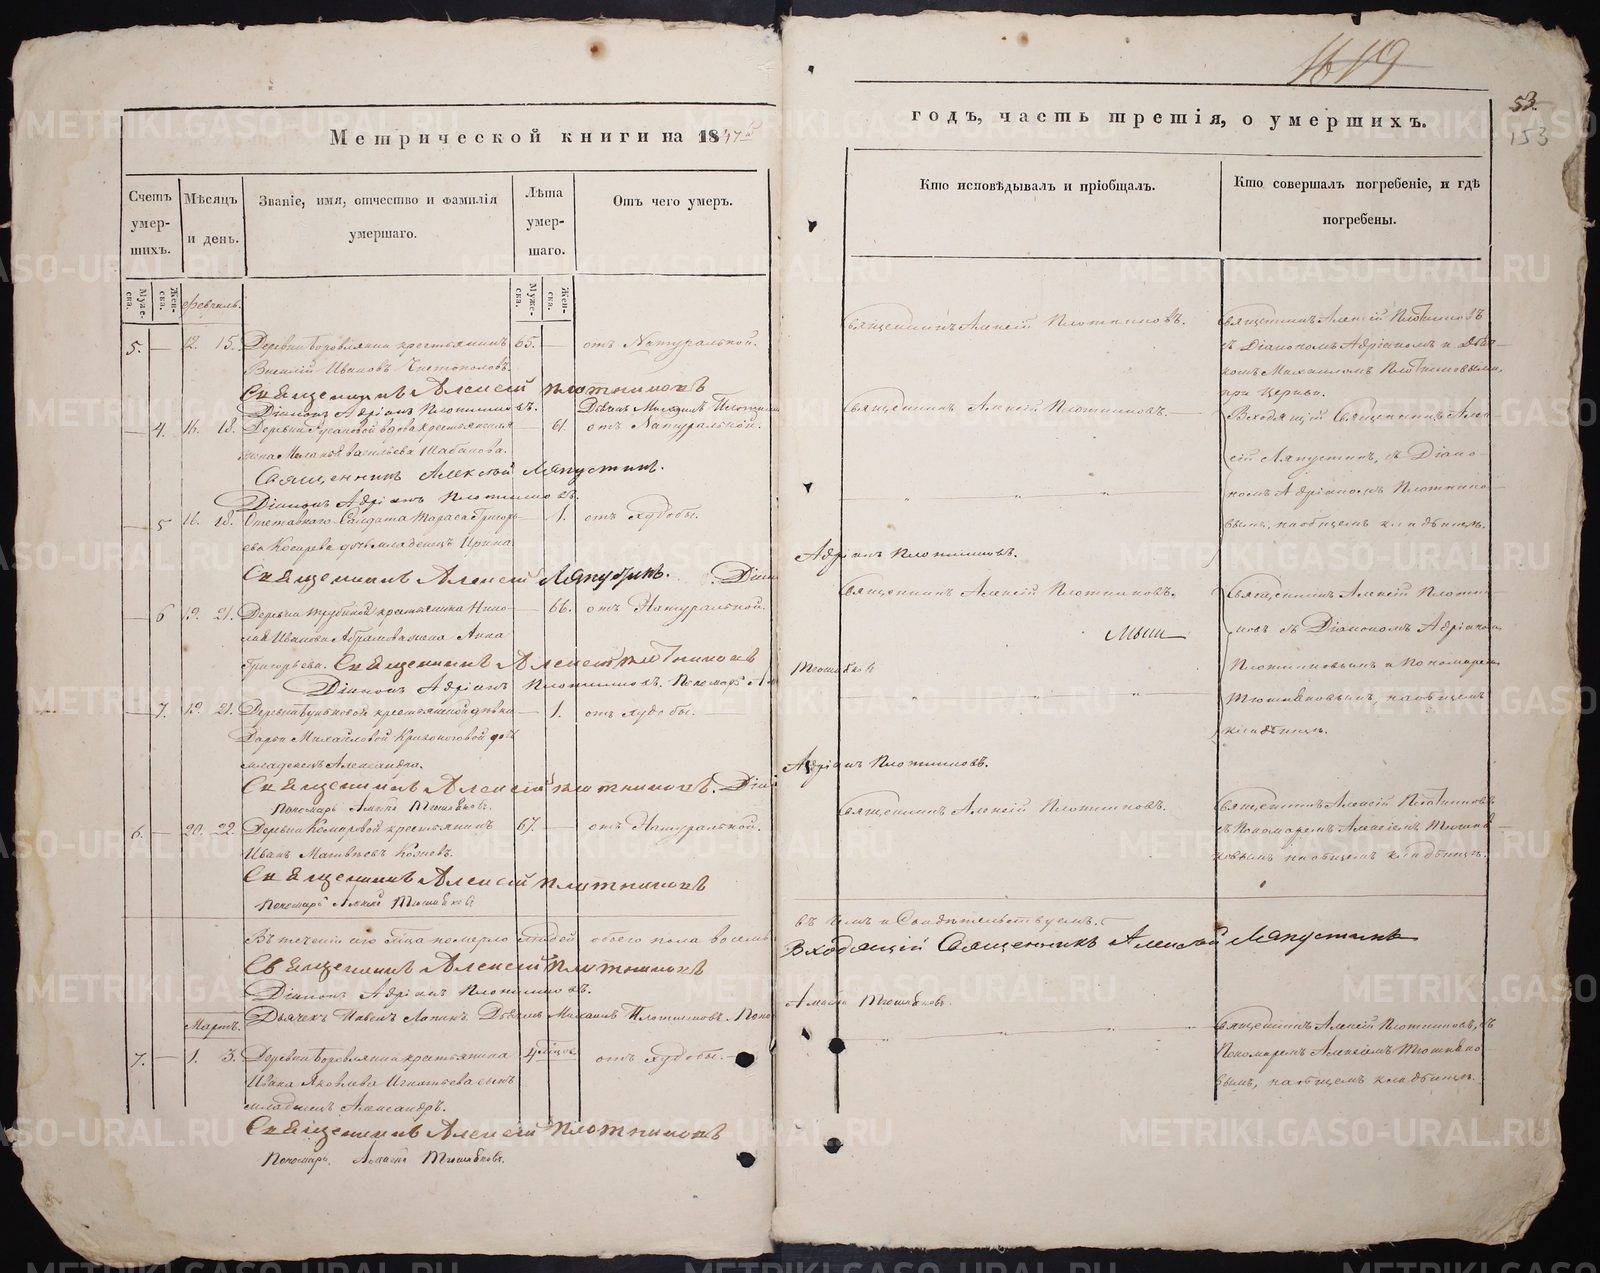 1619
53.
153
Метрической книги на 1847 годъ, часть третія, о умершихъ.
Счетъ умершихъ.
Мѣсяцъ и день.
Званіе, имя, отчество и фамилія умершаго.
Лѣта умершаго.
Отъ чего умеръ.
Кто исповѣдывалъ и пріобщалъ.
Кто совершалъ погребеніе, и гдѣ погребены.
Мужеска.
Женска.
Мужеска.
Женска.
Февраль.
5. — 12. 15. Деревни Боровлянки крестьянинъ 65. — отъ Натуральной.
Василій Ивановъ Чистополовъ.
Священникъ Алексій Плотниковъ
Діаконъ Адріанъ Плотниковъ. Дьячекъ Михаилъ Плотниковъ
Священникъ Алексій Плотниковъ.
Священникъ Алексій Плотниковъ
съ Діакономъ Адріаномъ и Дьяч-
комъ Михаиломъ Плотниковыми,
при церкви.
— 4. 16. 18. Деревни Русаковой вдова крестьянская — 61. отъ Натуральной.
жена Маланья Васильева Шабанова.
Священникъ Алексѣй Ляпустинъ.
Діаконъ Адріанъ Плотниковъ.
Священникъ Алексій Плотниковъ. —
Входящій Священникъ Алек-
сій Ляпустинъ, съ Діако-
номъ Адріаномъ Плотнико-
вымъ, на общемъ кладбищѣ.
— 5 16. 18. Отставнаго Солдата Тараса Григорь- — 1. отъ худобы.
ева Косарева дочь младенецъ Ирина
Священникъ Алексій Ляпустинъ. Діаконъ
Адріанъ Плотниковъ.
— 6 19. 21. Деревни Трубиной крестьянина Нико- — 66. отъ Натуральной.
лая Иванова Абрамова жена Анна
Григорьева. Священникъ Алексій Плотниковъ
Діаконъ Адріанъ Плотниковъ. Пономарь
Тюшняковъ
Священникъ Алексій Плотниковъ.
Священникъ Алексій Плотни-
ковъ съ Діакономъ Адріаномъ
Плотниковымъ и Пономаремъ
Тюшняковымъ, на общемъ
кладбищѣ.
— 7. 19. 21. крестьянской дѣвки — 1. отъ худобы. —
Дарьи Михайловой Кривоноговой дочь
младенецъ Александра.
Священникъ Алексій Плотниковъ. Діаконъ
Адріанъ Плотниковъ.
Пономарь Алексій Тюшняковъ.
6. — 20. 22. Деревни Комаровой крестьянинъ 67. — отъ Натуральной.
Иванъ Матвѣевъ
Священникъ Алексій Плотниковъ
Пономарь Алексій Тюшняковъ
Священникъ Алексій Плотниковъ.
Священникъ Алексій Плотниковъ
съ Пономаремъ Алексіемъ Тюшня-
ковымъ на общемъ кладбищѣ.
Въ теченіи сего мѣсяца померло людей обоего пола восемь
въ чемъ и Свидѣтельствуемъ.
Священникъ Алексій Плотниковъ
Входящій Священникъ Алексѣй Ляпустинъ
Діаконъ Адріанъ Плотниковъ.
Дьячекъ Павелъ Лапинъ. Дьячекъ Михаилъ Плотниковъ. Поно
Алексій Тюшняковъ.
Мартъ.
7. — 1. 3. Деревни Боровлянки крестьянина отъ худобы. —
Ивана Яковлева Игнатьева сынъ
младенецъ Александръ.
Священникъ Алексій Плотниковъ
Пономарь Алексій Тюшняковъ.
Священникъ Алексій Плотниковъ, съ
Пономаремъ Алексіемъ Тюшняко-
вымъ, на общемъ кладбищѣ.
METRIKI.GASO-URAL.RU